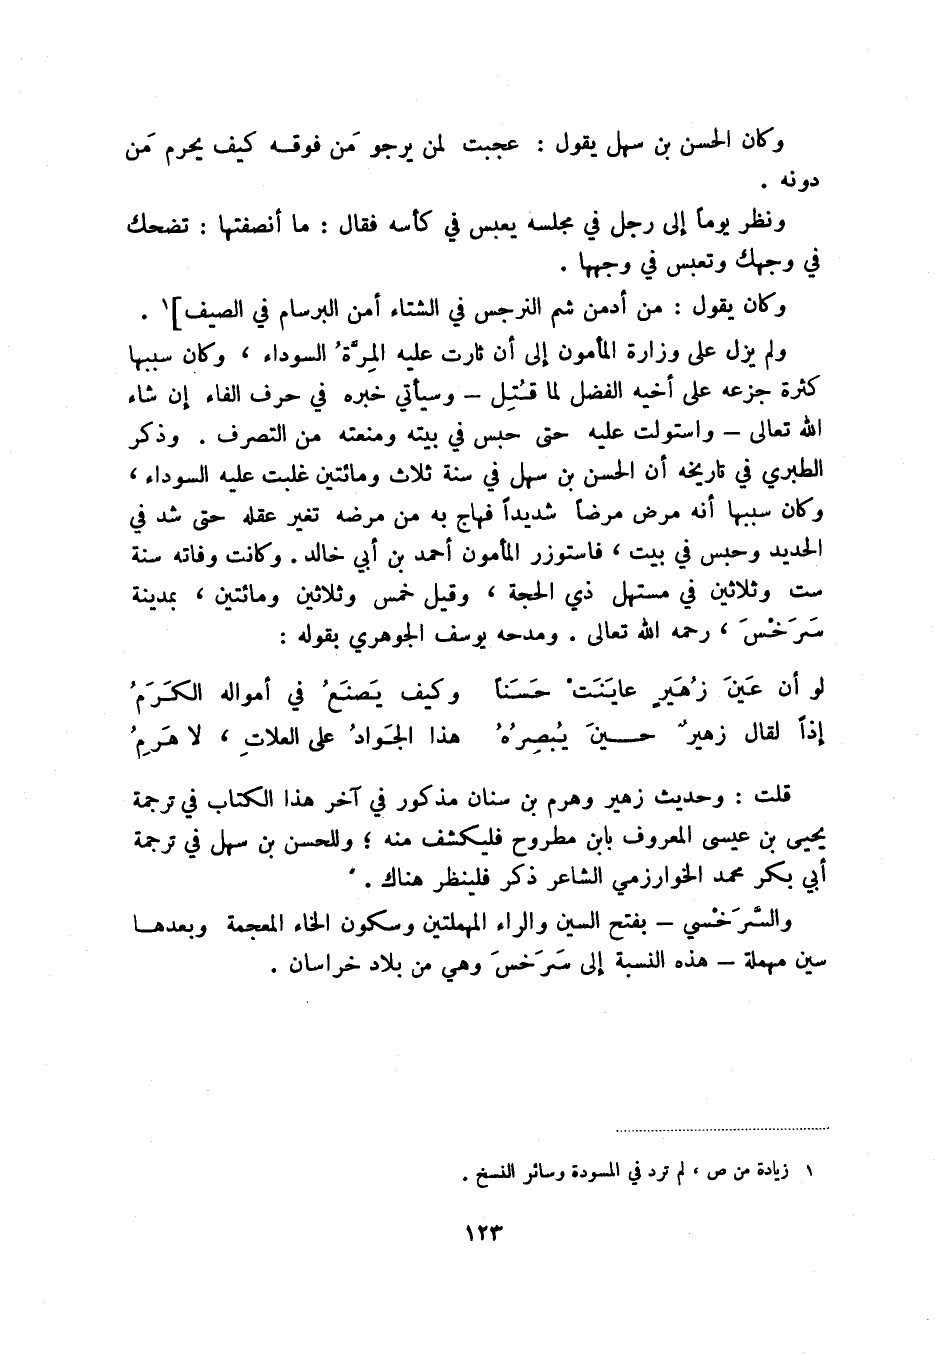 وكان الحسن بن سهل يقول : عجبت لمن يرجو مَن فوقه كيف يحرم مَن
دونه .
ونظر يوماً إلى رجل في مجلسه يعبس في كأسه فقال : ما أنصفتها : تضحك
في وجهك وتعبس في وجهها .
وكان يقول : من أدمن شم النرجس في الشتاء أمن البرسام في الصيف]١ .
ولم يزل على وزارة المأمون إلى أن ثارت عليه المِرَّةُ السوداء ، وكان سببها
كثرة جزعه على أخيه الفضل لما قُتِل – وسيأتي خبره في حرف الفاء إن شاء
الله تعالى – واستولت عليه حتى حبس في بيته ومنعته من التصرف . وذكر
الطبري في تاريخه أن الحسن بن سهل في سنة ثلاث ومائتين غلبت عليه السوداء ،
وكان سببها أنه مرض مرضاً شديداً فهاج به من مرضه تغير عقله حتى شد في
الحديد وحبس في بيت ، فاستوزر المأمون أحمد بن أبي خالد . وكانت وفاته سنة
ست وثلاثين في مستهل ذي الحجة ، وقيل خمس وثلاثين ومائتين ، بمدينة
سَرَخْسَ ، رحمه الله تعالى . ومدحه يوسف الجوهري بقوله :
لو أن عَينَ زُهَيرٍ عايَنَتْ حَسَناً وكيف يَصنَعُ في أمواله الكَرَمُ
إذاً لقال زهيرٌ حــينَ يُبصِرُهُ هذا الجَوادُ على العلاتِ ، لا هَرِمُ
قلت : وحديث زهير وهرم بن سنان مذكور في آخر هذا الكتاب في ترجمة
يحيى بن عيسى المعروف بابن مطروح فليكشف منه ؛ وللحسن بن سهل في ترجمة
أبي بكر محمد الخوارزمي الشاعر ذكر فلينظر هناك .
والسَّرَخْسي – بفتح السين والراء المهملتين وسكون الخاء المعجمة وبعدهــا
سين مهملة – هذه النسبة إلى سَرَخسَ وهي من بلاد خراسان .
١ زيادة من ص ، لم ترد في المسودة وسائر النسخ .
١٢٣